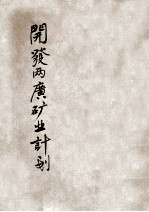 開發两廣矿业計划